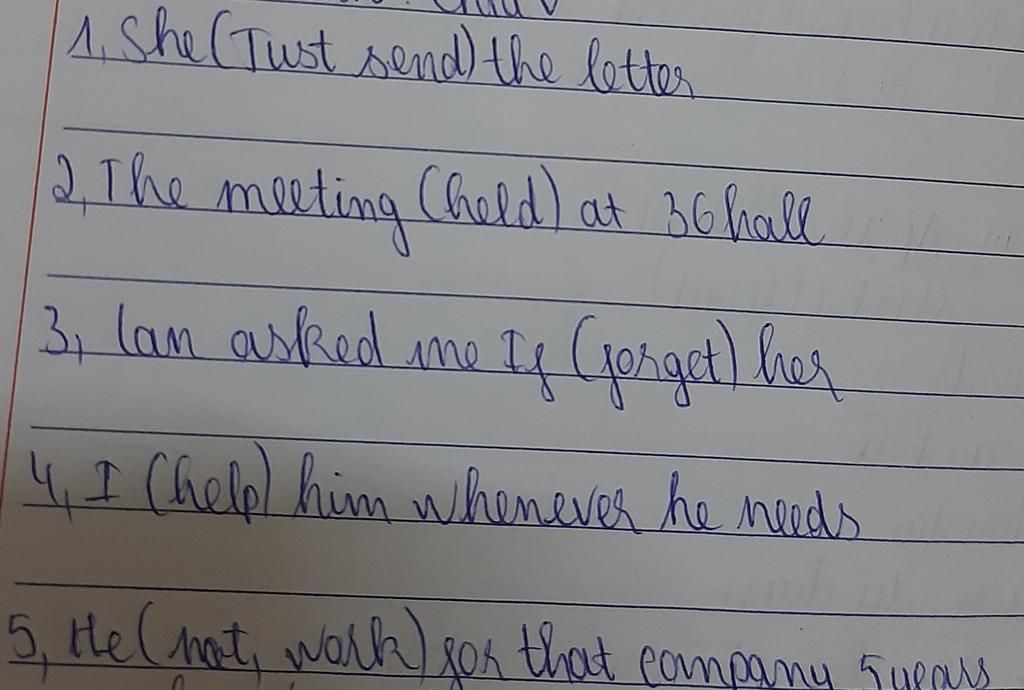 1, She (Just send) the letter
2, The meeting (held) at 36 hall
3, Ian asked me If (forget) her
4, I (help) him whenever he needs
5, He (not, work) for that company 5 years